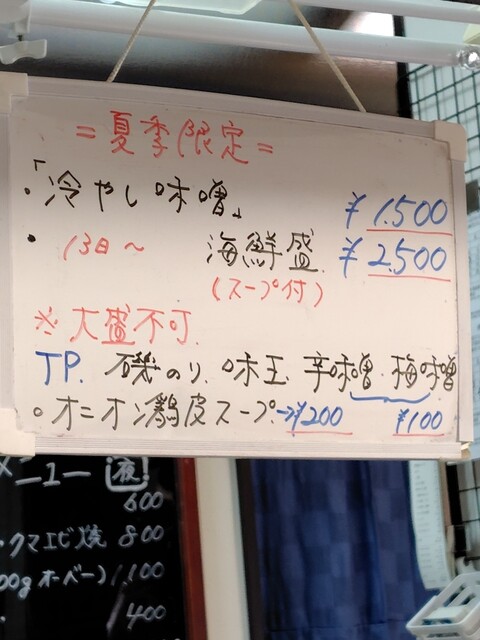 =夏季限定=
・「冷やし味噌」 ¥1.500
・13日～ 海鮮盛 ¥2.500
(スープ付)
※大盛不可
TP. 磯のり. 味玉. 辛味噌. 梅味噌
¥100
○オニオン鶏皮スープ→¥200
メニュー 夜!
600
・クマエビ焼 800
00gオーバー) 1.100
400